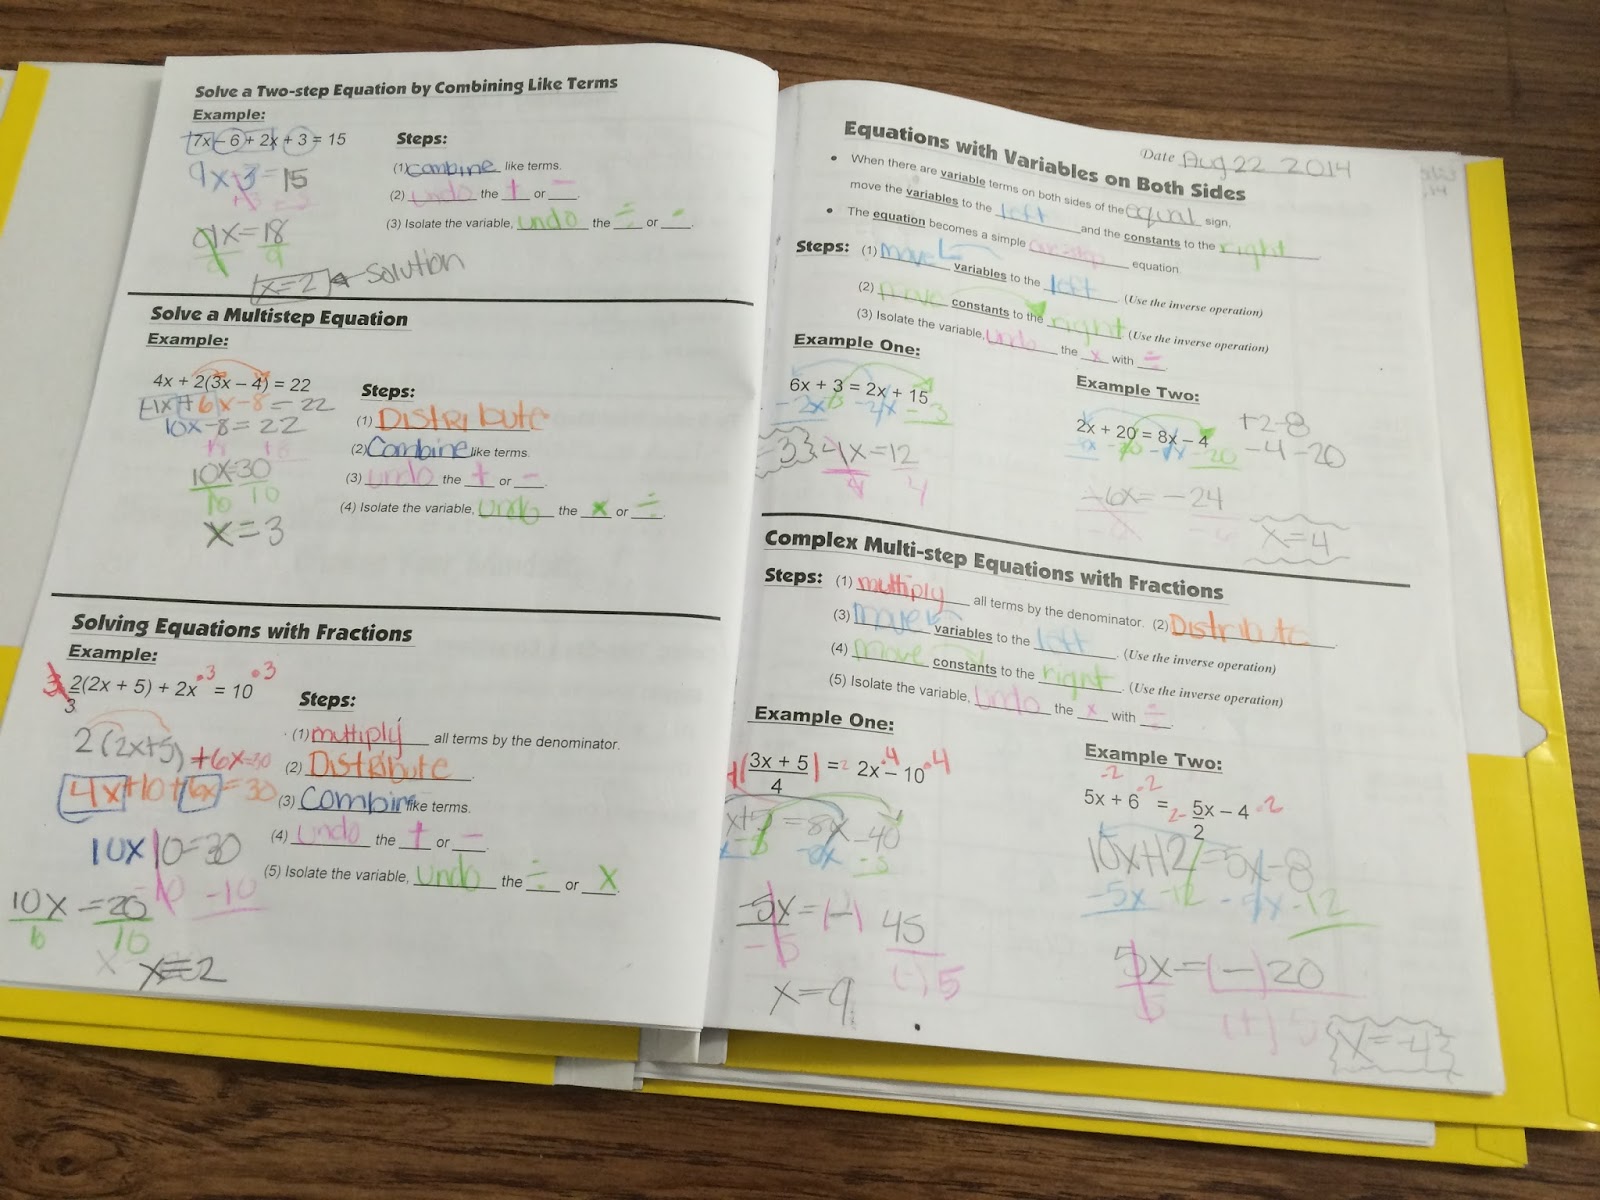 Solve a Two-step Equation by Combining Like Terms
Example:
7x – 6 + 2x + 3 = 15
9x - 3 = 15
+3 = 3
9x = 18
9 9
x = 2 ← Solution
Steps:
(1) combine like terms.
(2) undo the + or –.
(3) Isolate the variable, undo the ÷ or ·.
Solve a Multistep Equation
Example:
4x + 2(3x – 4) = 22
4x + 6x - 8 = 22
10x - 8 = 22
10x = 30
10 10
x = 3
Steps:
(1) Distribute
(2) Combine like terms.
(3) undo the + or –.
(4) Isolate the variable, undo the x or ÷.
Solving Equations with Fractions
Example:
3· 2(2x + 5) + 2x ·3 = 10 ·3
3
2(2x+5) + 6x = 30
4x + 10 + 6x = 30
10x 10 = 30
-10 -10
10x = 20
10 10
x = 2
Steps:
(1) multiply all terms by the denominator.
(2) Distribute.
(3) Combine like terms.
(4) undo the + or –.
(5) Isolate the variable, undo the ÷ or x.
Date Aug 22 2014
Equations with Variables on Both Sides
• When there are variable terms on both sides of the equal sign,
move the variables to the left and the constants to the right.
• The equation becomes a simple equation.
Steps: (1) move variables to the left. (Use the inverse operation)
(2) move constants to the right. (Use the inverse operation)
(3) Isolate the variable, undo the x with ÷.
Example One:
6x + 3 = 2x + 15
-2x -3 -2x -3
4x = 12
4 4
=3
Example Two:
2x + 20 = 8x – 4
+2-8
-4-20
-20 -20
-6x = -24
-6
x = 4
Complex Multi-step Equations with Fractions
Steps: (1) multiply all terms by the denominator. (2) Distribute.
(3) move variables to the left. (Use the inverse operation)
(4) move constants to the right. (Use the inverse operation)
(5) Isolate the variable, undo the x with ÷.
Example One:
(3x + 5) = 2x ·4 – 10 ·4
4
x+5 = 8x - 40
-8x -5
-5x = (-) 45
-5 (-)5
x = 9
Example Two:
·2 ·2
5x + 6 = 5x – 4 ·2
2
10x+12 = 5x - 8
-5x -12 -5x -12
5x = (-) 20
5 (+) 5
x = -4